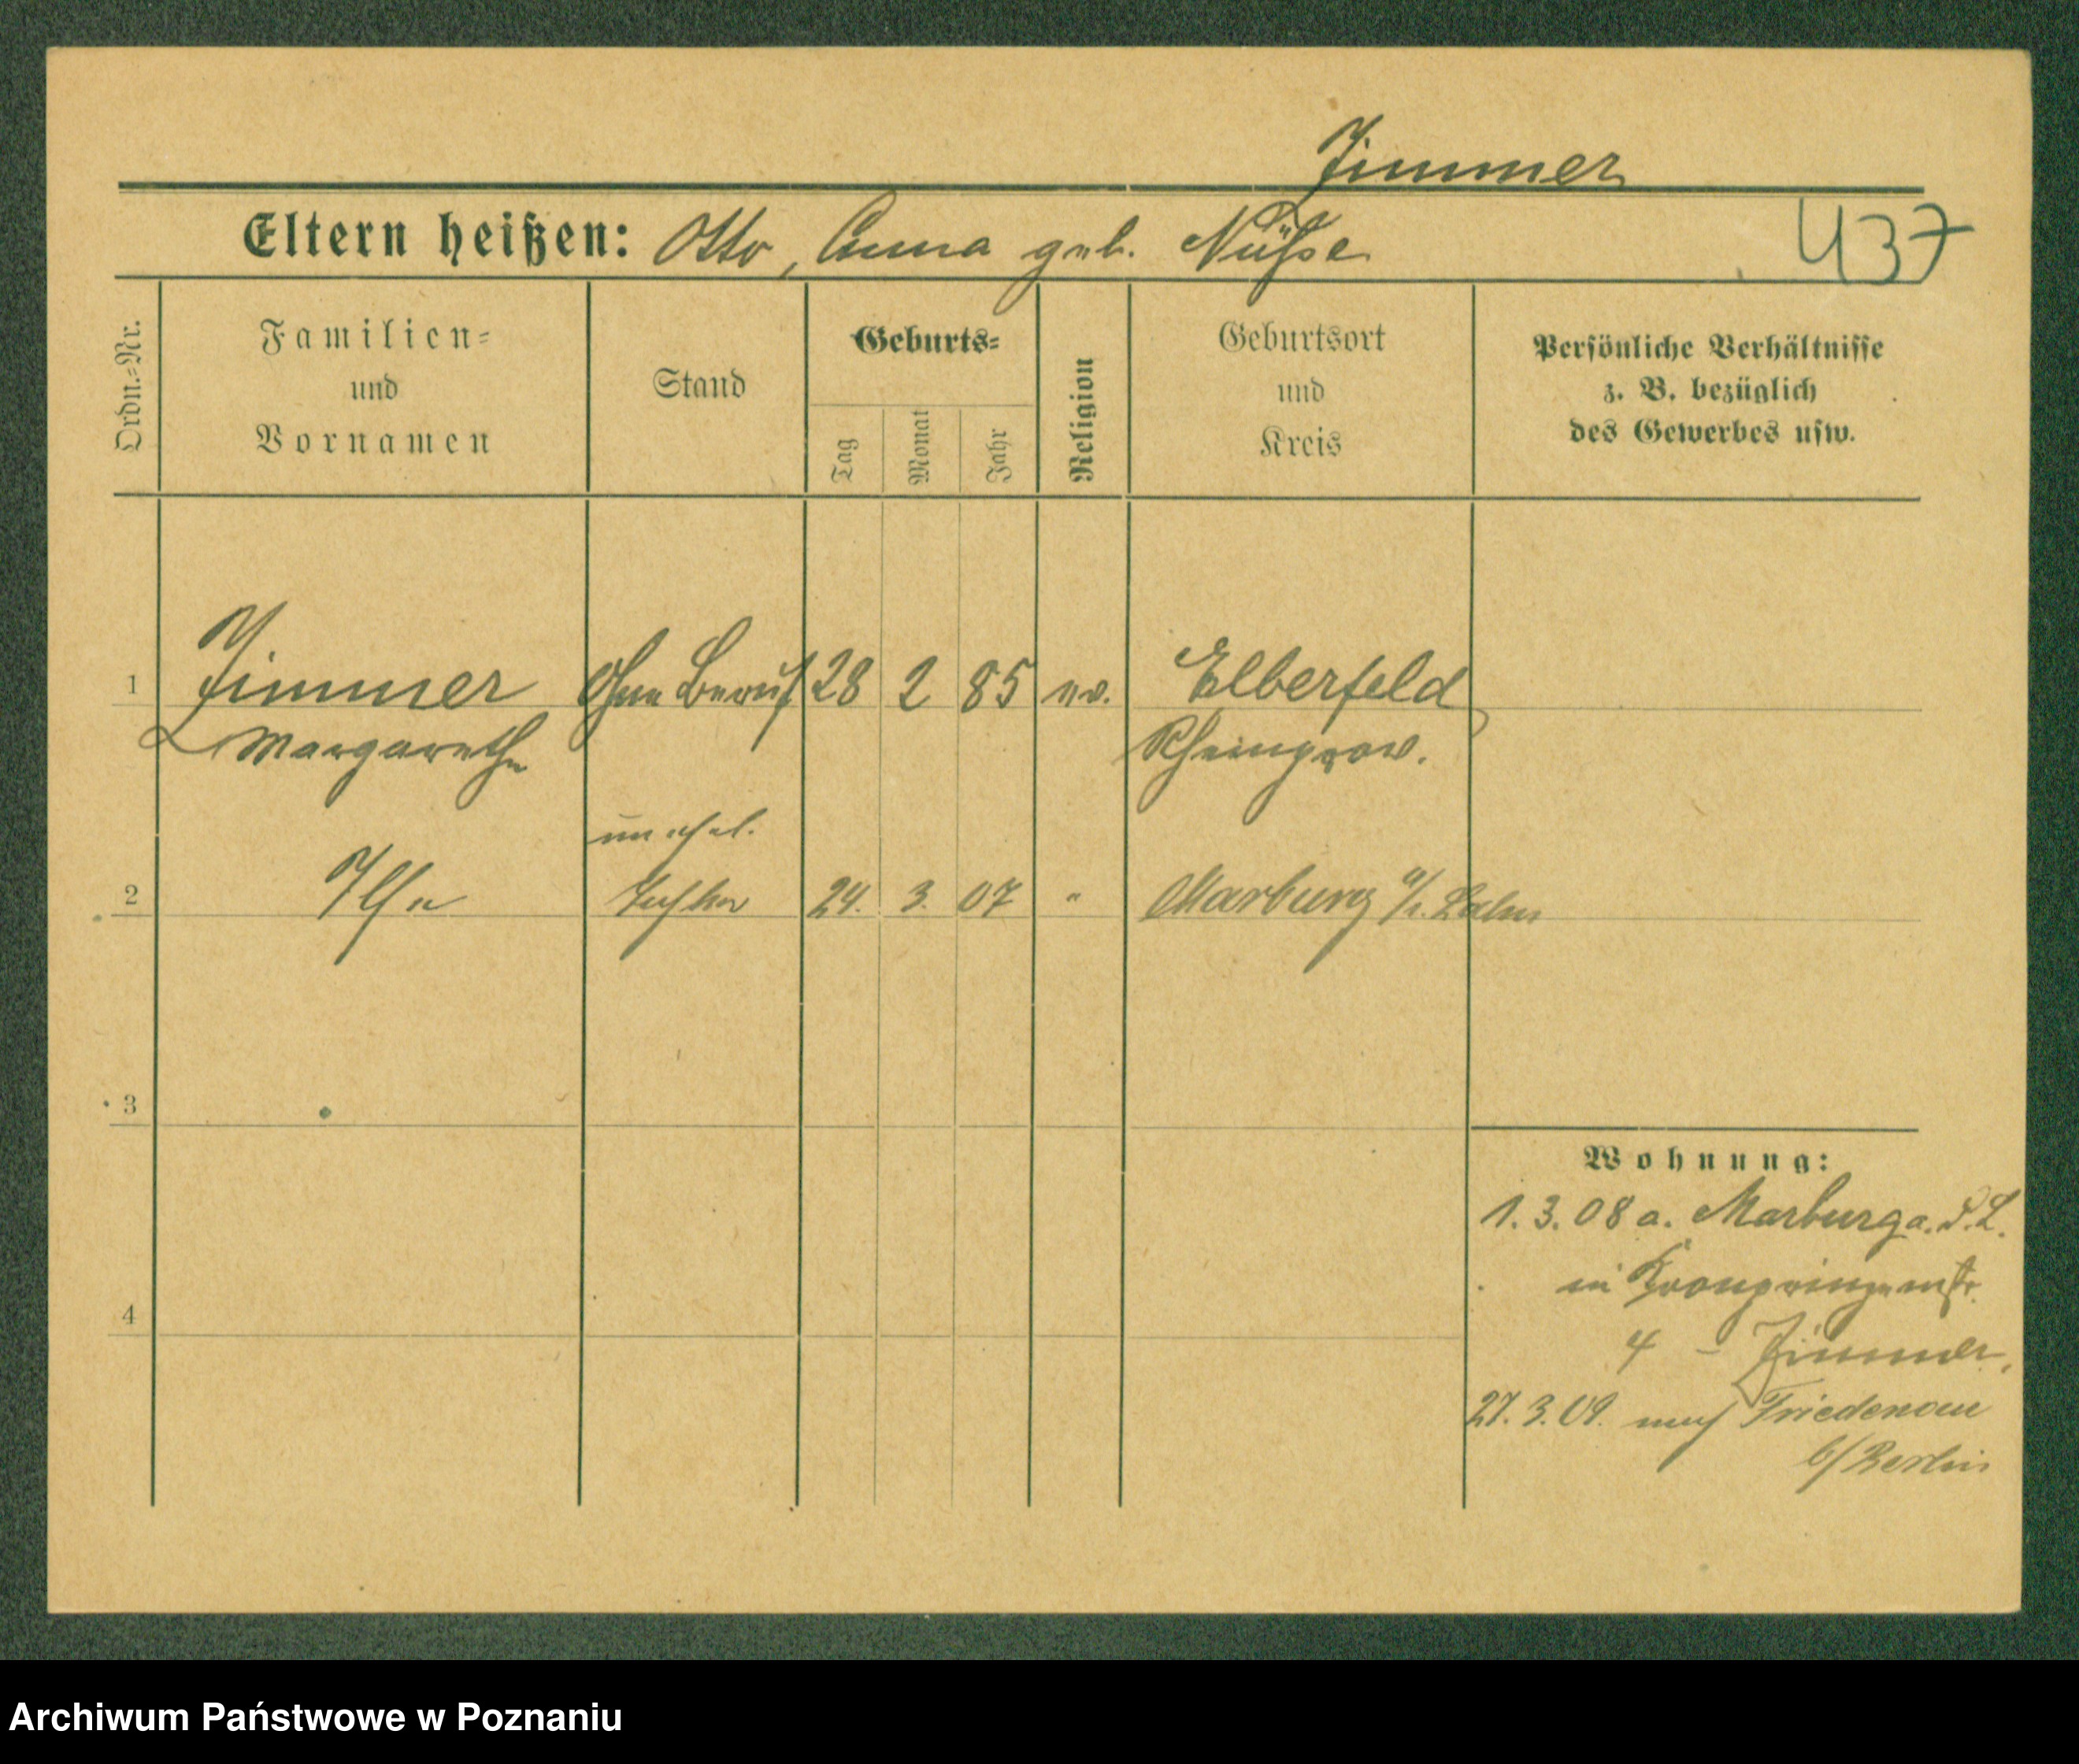 Zimmer
Eltern heißen: Otto, Anna geb. Nüsse
437
Ordn.=Nr.
Familien=
und
Vornamen
Stand
Geburts=
Tag
Monat
Jahr
Religion
Geburtsort
und
Kreis
Persönliche Verhältnisse
z. B. bezüglich
des Gewerbes usw.
1 Zimmer ohne Beruf 28 2 85 ev. Elberfeld
Margarethe Rheinprov.
unehel.
2 Ilse Tochter 24. 3. 07 " Marburg a/d. Lahn
3
Wohnung:
1. 3. 08 a. Marburg a. d. L.
in Kronprinzenstr.
4
4 - Zimmer,
27. 3. 09. nach Friedenau
b/Berlin
Archiwum Państwowe w Poznaniu